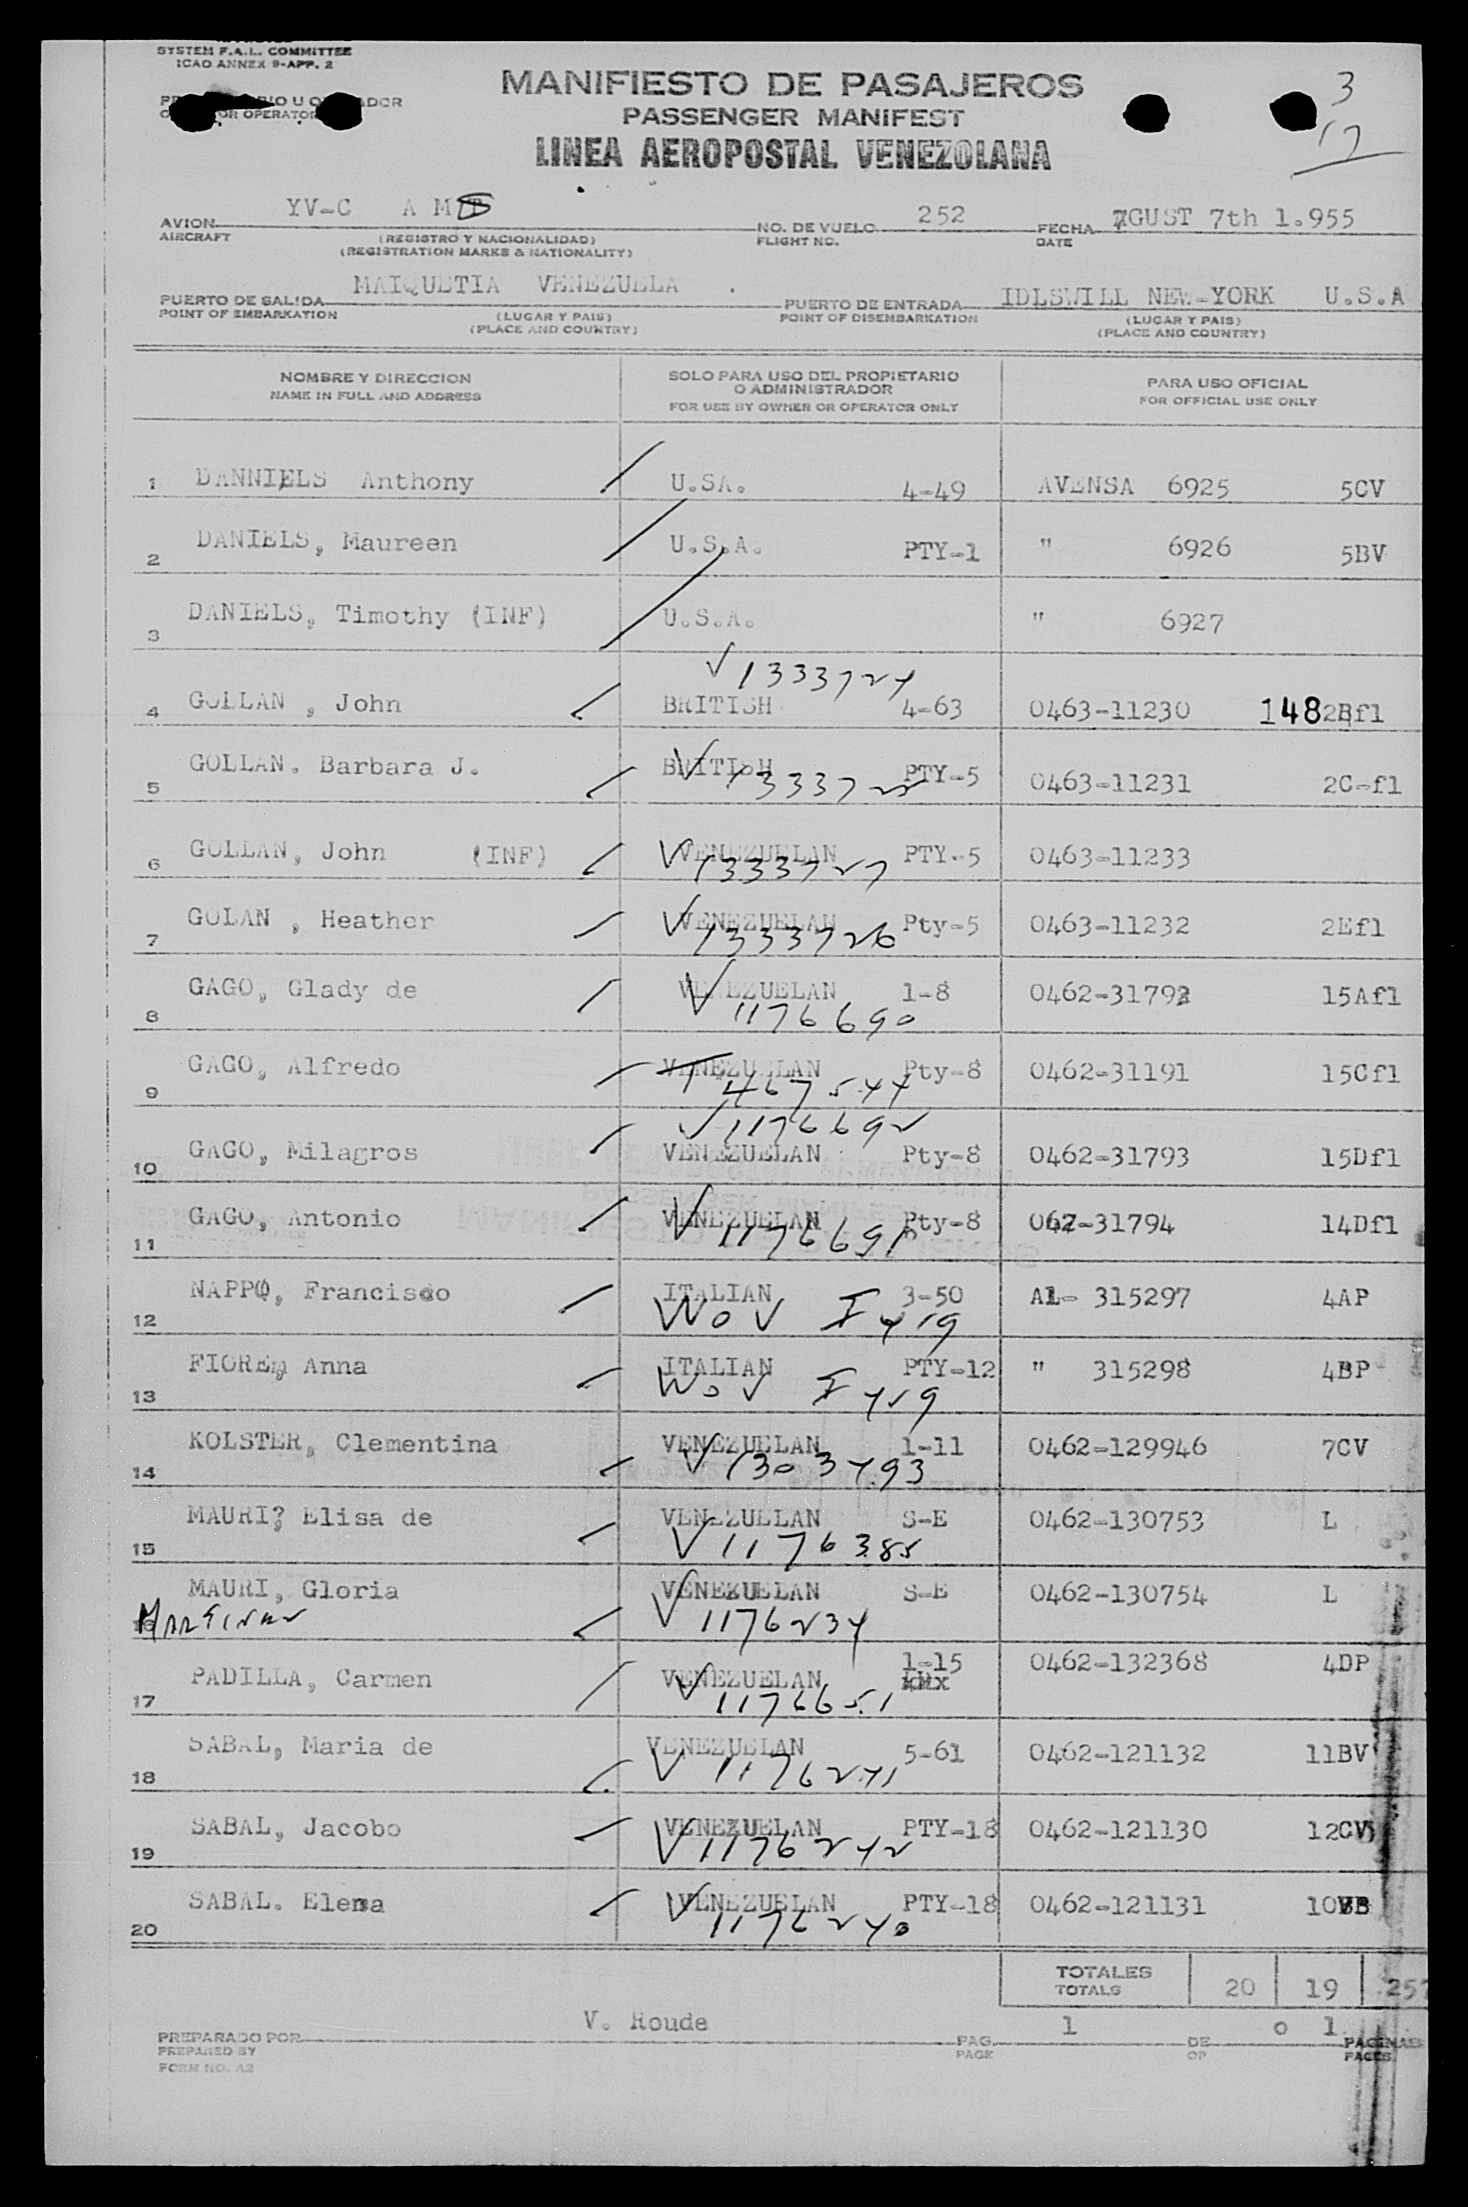 SYSTEM F.A.L. COMMITTEE
ICAO ANNEX 9-APP. 2
OR OPERATOR
MANIFIESTO DE PASAJEROS
PASSENGER MANIFEST
LINEA AEROPOSTAL VENEZOLANA
3
17
AVION YV-C A M
AIRCRAFT
(REGISTRO Y NACIONALIDAD)
(REGISTRATION MARKS & NATIONALITY)
NO. DE VUELO 252
FLIGHT NO.
FECHA GUST 7th 1.955
DATE
PUERTO DE SALIDA MAIQUETIA VENEZUELA .
POINT OF EMBARKATION
(LUGAR Y PAIS)
(PLACE AND COUNTRY)
PUERTO DE ENTRADA IDLSWILL NEW-YORK U.S.A
POINT OF DISEMBARKATION
(LUGAR Y PAIS)
(PLACE AND COUNTRY)
NOMBRE Y DIRECCION
NAME IN FULL AND ADDRESS
SOLO PARA USO DEL PROPIETARIO
O ADMINISTRADOR
FOR USE BY OWNER OR OPERATOR ONLY
PARA USO OFICIAL
FOR OFFICIAL USE ONLY
1 DANNIELS Anthony U.SA. 4-49 AVENSA 6925 5CV
2 DANIELS, Maureen U.S.A. PTY-1 " 6926 5BV
3 DANIELS, Timothy (INF) U.S.A. " 6927
V 1333724
4 GOLLAN , John BRITISH 4-63 0463-11230 148 2Bfl
5 GOLLAN. Barbara J. BRITISH PTY-5 0463-11231 2C-fl
V 1333725
6 GOLLAN, John (INF) VENEZUELAN PTY-5 0463-11233
V 1333727
7 GOLAN , Heather VENEZUELAN Pty-5 0463-11232 2Efl
V 1333726
8 GAGO, Glady de VENEZUELAN 1-8 0462-31792 15Afl
V 1176690
9 GAGO, Alfredo VENEZUELAN Pty-8 0462-31191 15Cfl
T 467544
V 1176692
10 GAGO, Milagros VENEZUELAN Pty-8 0462-31793 15Dfl
11 GAGO, Antonio VENEZUELAN Pty-8 062-31794 14Dfl
V 1176691
12 NAPPO, Francisco ITALIAN 3-50 AL- 315297 4AP
WOV I 419
13 FIORE, Anna ITALIAN PTY-12 " 315298 4BP
WOV I 419
14 KOLSTER, Clementina VENEZUELAN 1-11 0462-129946 7CV
V 1303493
15 MAURI, Elisa de VENEZUELAN S-E 0462-130753 L
V 1176385
16 MAURI, Gloria VENEZUELAN S-E 0462-130754 L
V 1176234
17 PADILLA, Carmen VENEZUELAN 1-15 0462-132368 4DP
V 1176651
18 SABAL, Maria de VENEZUELAN 5-61 0462-121132 11BV
V 1176241
19 SABAL, Jacobo VENEZUELAN PTY-18 0462-121130 12CV
V 1176242
20 SABAL. Elena VENEZUELAN PTY-18 0462-121131
V 1176240
TOTALES
TOTALS
20 19 257
PREPARADO POR V. Roude
PREPARED BY
FORM NO. A2
PAG. 1 DE o 1 PAGINAS
PAGE OF PAGES